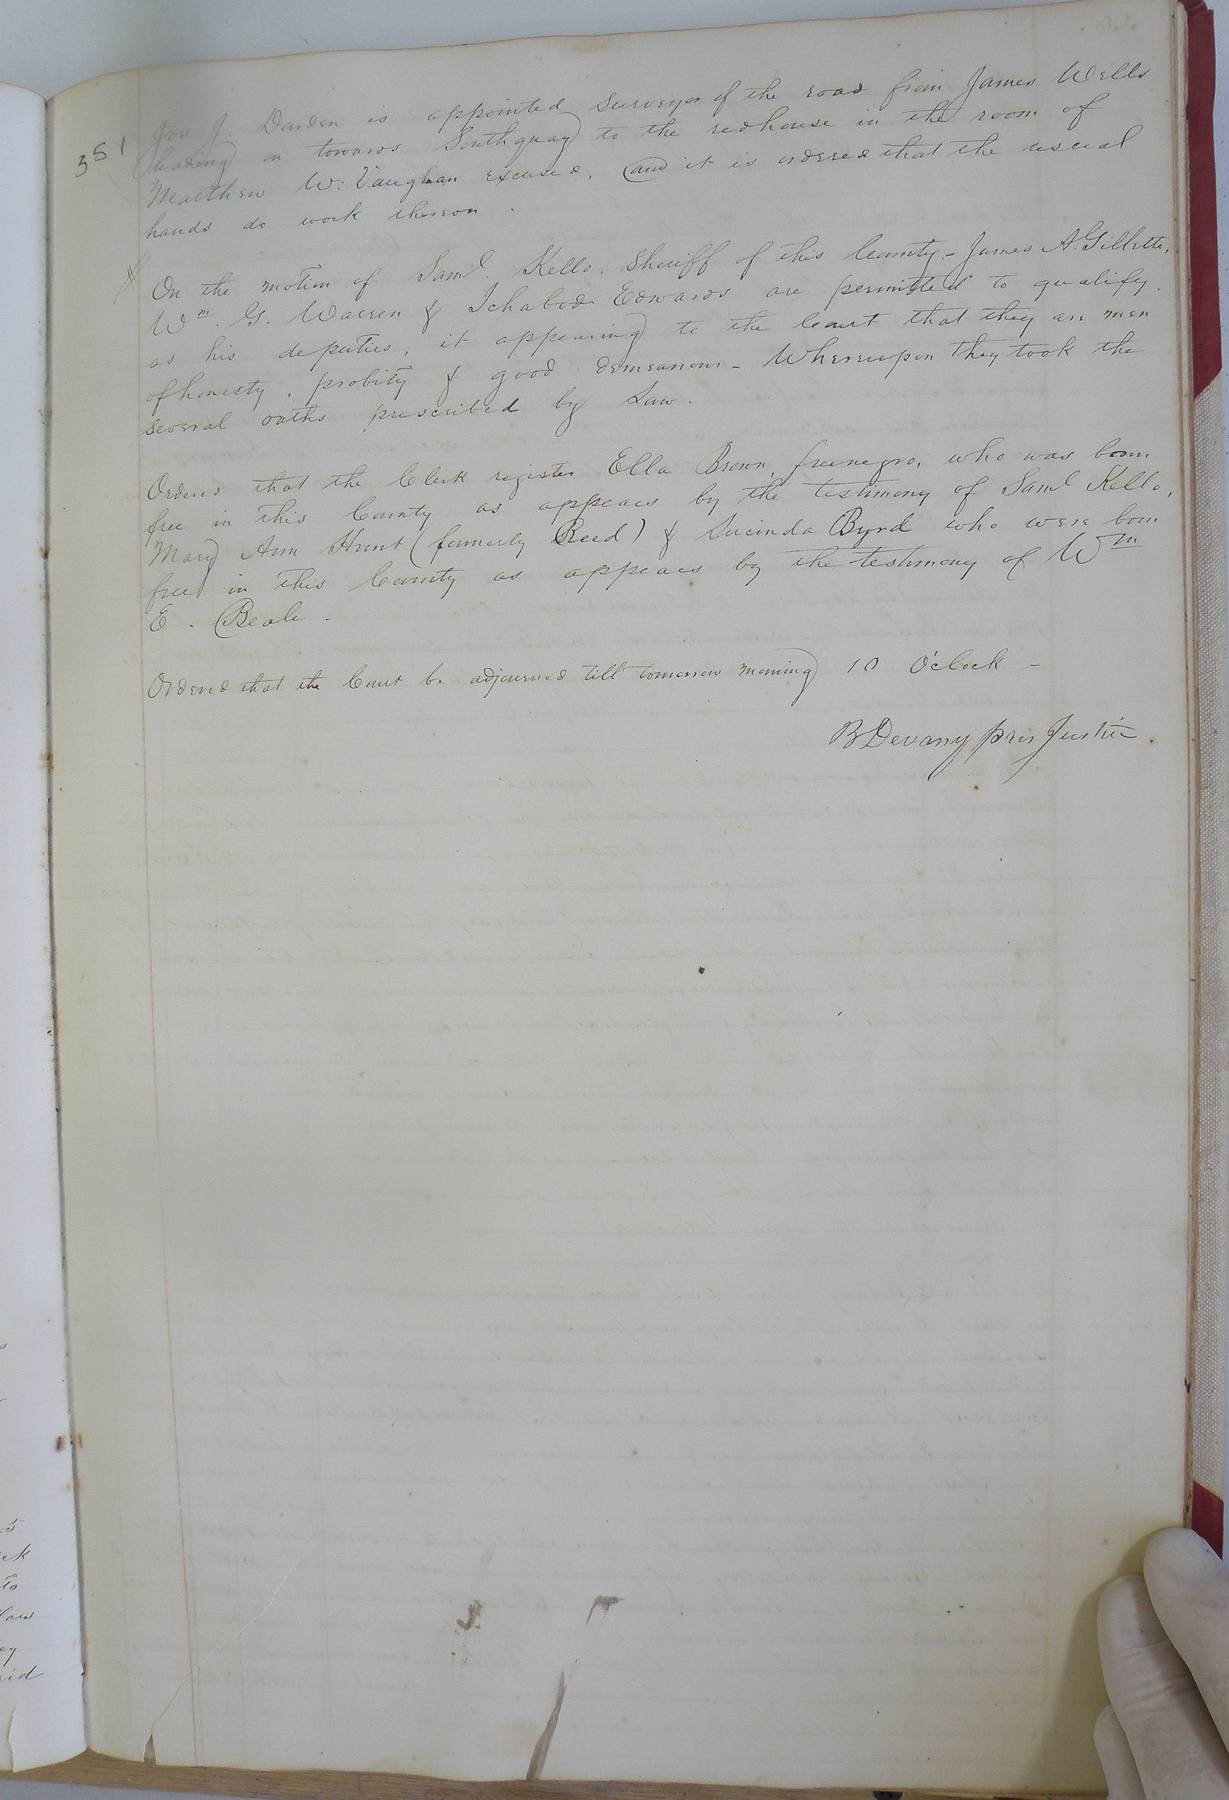 351
Jos J. Darden is appointed Surveyor of the road from James Wells
leading on towards Southquay to the redhouse in the room of
Matthew W: Vaughan excused, and it is ordered that the usual
hands do work thereon.
On the motion of Saml. Kello, Sheriff of this County - James A. Gillette,
Wm. G. Warren & Ichabod Edwards are permitted to qualify
as his deputies, it appearing to the Court that they are men
of honesty, probity & good demeanour - Whereupon they took the
several oaths prescribed by Law.
Ordered that the Clerk register Ella Brown, free negro, who was born
free in this County as appears by the testimony of Saml Kello,
Mary Ann Hunt (formerly Reed) & Lucinda Byrd who were born
free in this County as appears by the testimony of Wm
E. Beale.
Ordered that the Court be adjourned till tomorrow morning 10 O'clock -
B Devany pres Justice.
15
to
aid